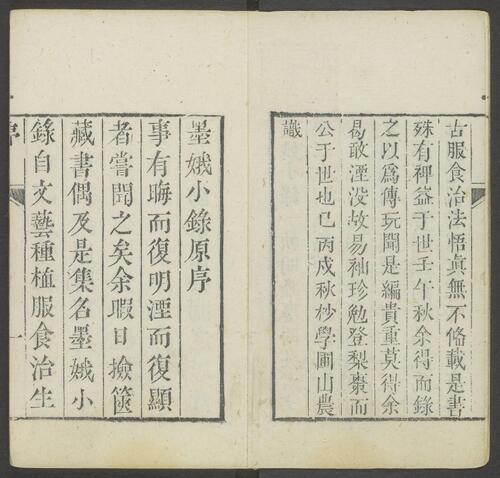 古服食治法悟眞無不俻載是書
殊有禆益于世壬午秋余得而錄
之以爲傳玩聞是編貴重莫得余
曷敢湮没故易袖珍勉登梨棗而
公于世也已丙戌秋杪學圃山農
識
墨娥小錄原序
事有晦而復明湮而復顯
者嘗聞之矣余暇日撿篋
藏書偶及是集名墨娥小
錄自文藝種植服食治生
序
一